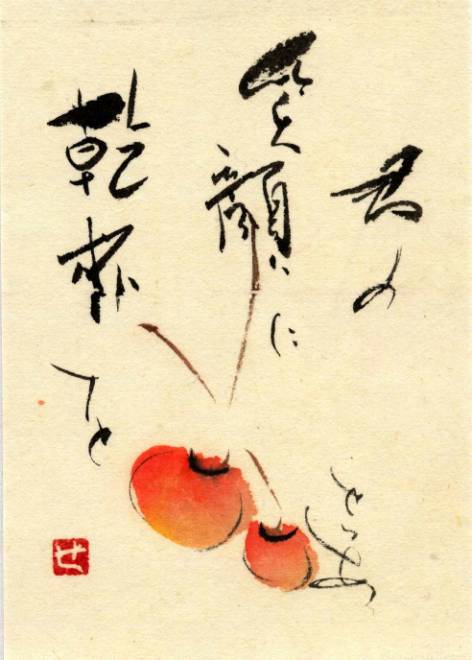 君の
笑顔に
乾杯
せ